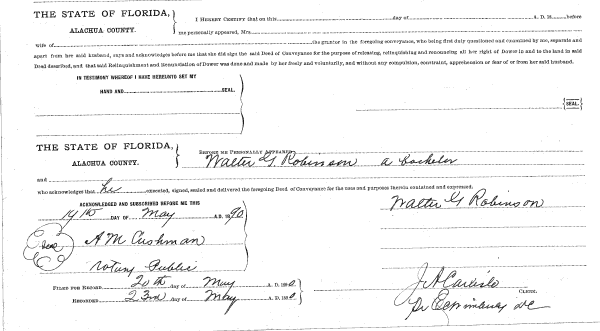 THE STATE OF FLORIDA,
ALACHUA COUNTY.
I HEREBY CERTIFY that on this day of A. D. 18 before
me personally appeared, Mrs.
wife of the grantor in the foregoing conveyance, who being first duly questioned and examined by me, separate and
apart from her said husband, says and acknowledges before me that she did sign the said Deed of Conveyance for the purpose of releasing, relinquishing and renouncing all her right of Dower in and to the land in said
Deed described, and that said Relinquishment and Renunciation of Dower was done and made by her freely and voluntarily, and without any compulsion, constraint, apprehension or fear of or from her said husband.
IN TESTIMONY WHEREOF I HAVE HEREUNTO SET MY
HAND AND SEAL.
SEAL.
THE STATE OF FLORIDA,
ALACHUA COUNTY.
BEFORE ME PERSONALLY APPEARED
Walter G. Robinson a bachelor
and
who acknowledges that he executed, signed, sealed and delivered the foregoing Deed of Conveyance for the uses and purposes therein contained and expressed.
ACKNOWLEDGED AND SUBSCRIBED BEFORE ME THIS
19th DAY OF May A. D. 1890.
Walter G Robinson
Seal
A M Cushman
Notary Public
FILED FOR RECORD 20th day of May A. D. 1890.
RECORDED 23rd day of May A. D. 1890.
J A Carlisle
CLERK.